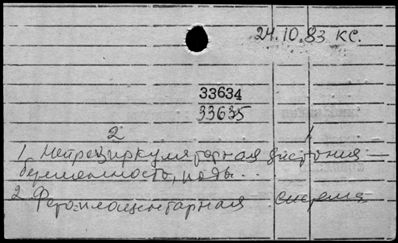 24.10.83 КС.
33634
33635
2 1
1. Нейроциркуляторная дистония —
беременность, роды...
2. Фетоплацентарная система